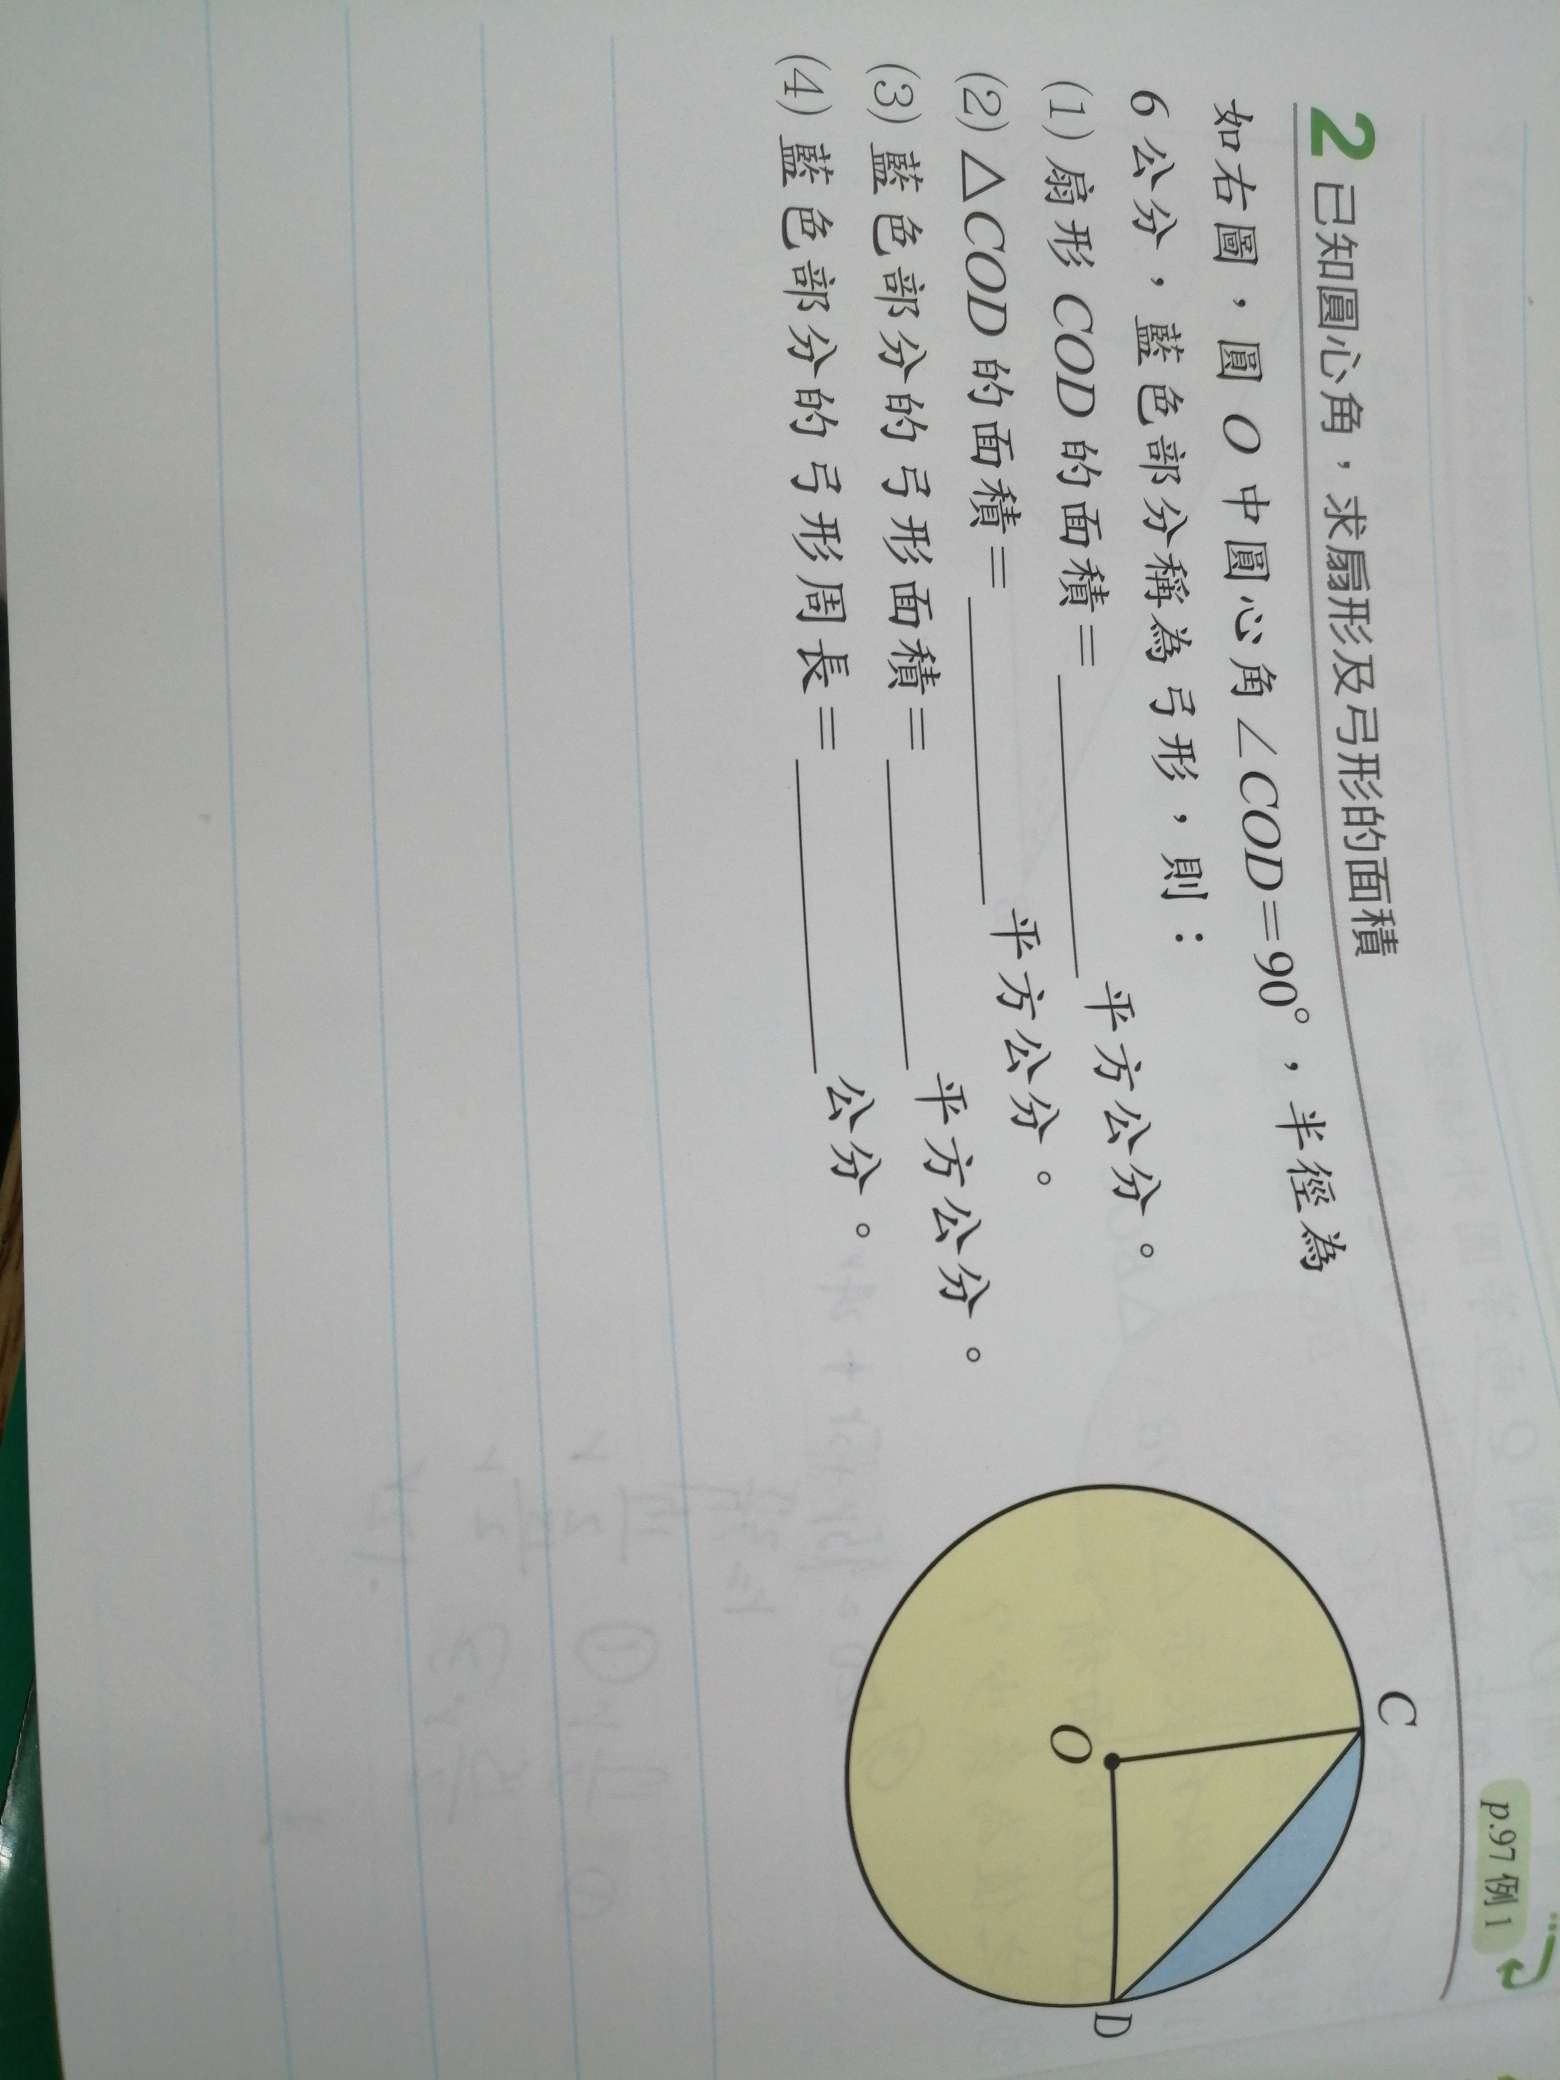 p.97 例 1
2 已知圓心角，求扇形及弓形的面積
如右圖，圓 O 中圓心角∠COD=90°，半徑為
6 公分，藍色部分稱為弓形，則：
(1) 扇形 COD 的面積=＿＿＿＿平方公分。
(2) △COD 的面積=＿＿＿＿平方公分。
(3) 藍色部分的弓形面積=＿＿＿＿平方公分。
(4) 藍色部分的弓形周長=＿＿＿＿公分。
C
O
D